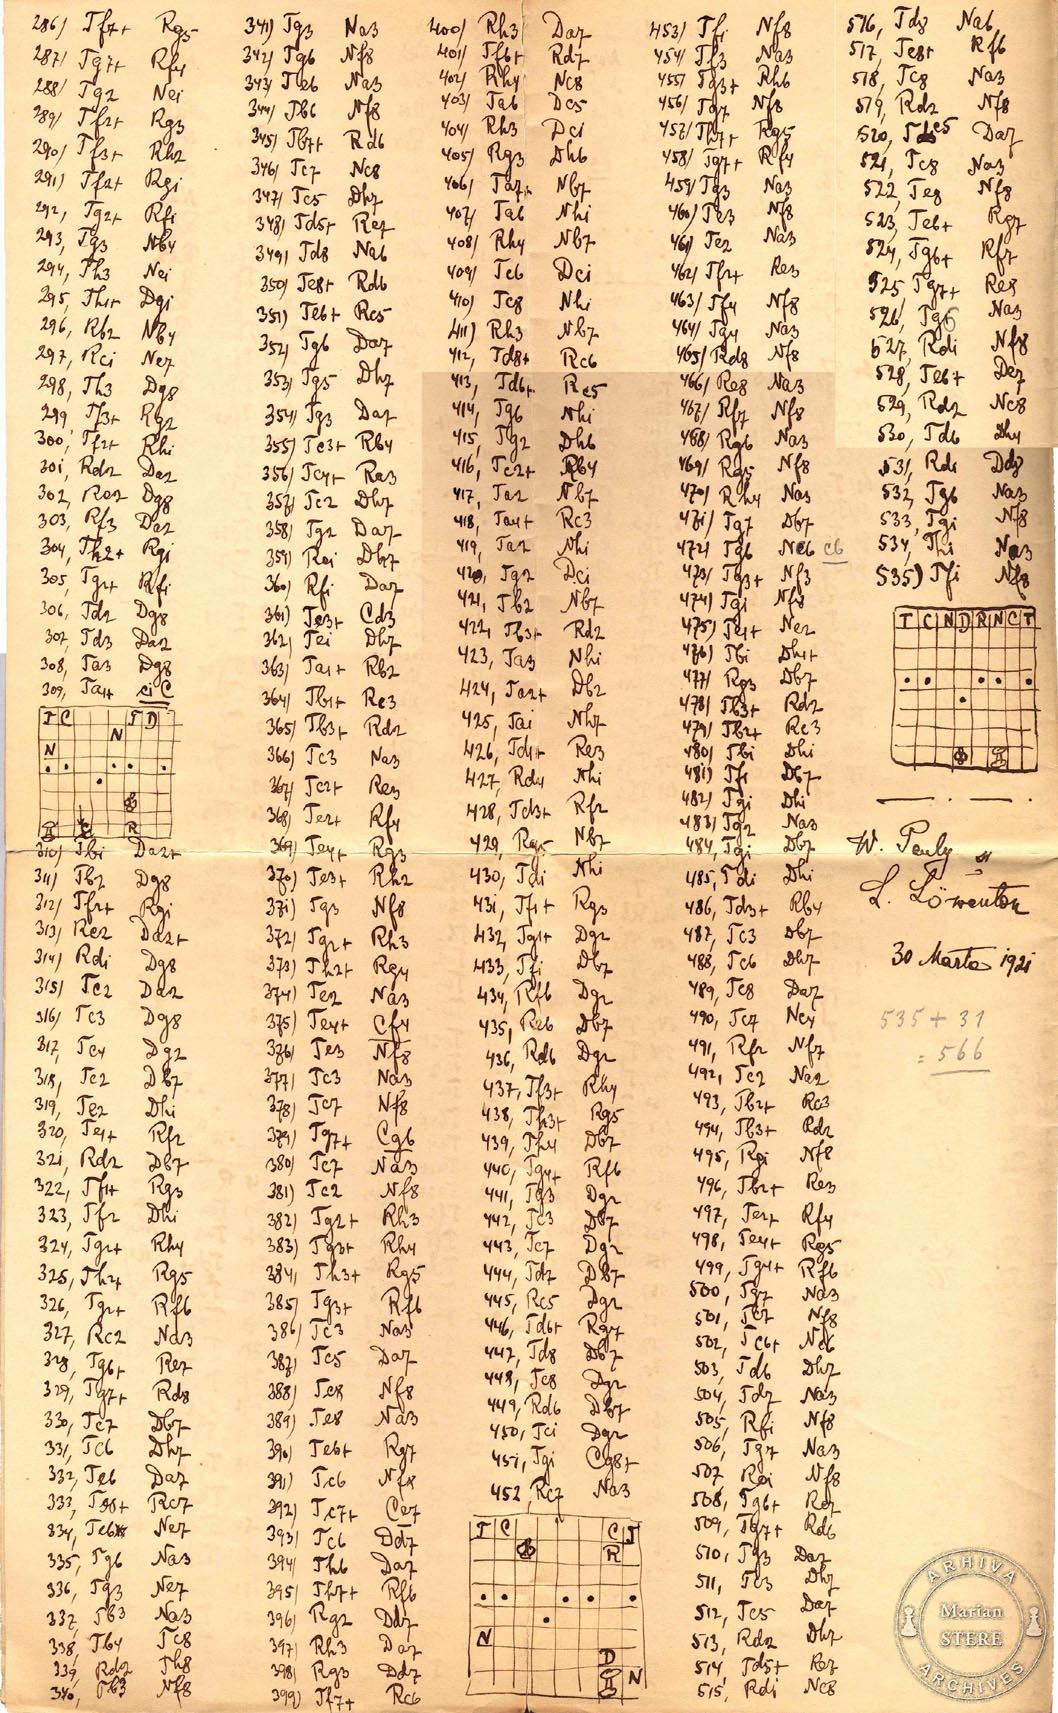 286) Tf7+ Rg5
287) Tg7+ Rf4
288) Tg2 Nei
289) Tf2+ Rg3
290) Tf3+ Rh2
291) Tf2+ Rgi
292, Tg2+ Rfi
293, Tg3 Nb4
294, Th3 Nei
295, Th1+ Dgi
296, Rb2 Nb4
297, Rci Ne7
298, Th3 Dg8
299, Tf3+ Rg2
300, Tf2+ Rhi
301, Rd2 Da2
302, Re2 Dg8
303, Rf3 Da2
304, Th2+ Rgi
305, Tg2+ Rfi
306, Td2 Dg8
307, Td3 Da2
308, Ta3 Dg8
309, Ta1+ ci C
T C T D
N
N
R
310) Tbi Da2+
311) Tb2 Dg8
312) Tf2+ Rgi
313) Re2 Da2+
314) Rdi Dg8
315) Tc2 Da2
316) Tc3 Dg8
317, Tc4 Dg2
318, Tc2 Db7
319, Te2 Dhi
320, Te1+ Rf2
321, Rd2 Db7
322, Tf1+ Rg3
323, Tf2 Dhi
324, Tg2+ Rh4
325, Th2+ Rg5
326, Tg2+ Rf6
327, Rc2 Na3
328, Tg6+ Re7
329, Tg7+ Rd8
330, Tc7 Db7
331, Tc6 Dh7
332, Te6 Da7
333, Te8+ Rc7
334, Te6 Ne7
335, Tg6 Na3
336, Tg3 Ne7
337, Tb3 Na3
338, Tb4 Tc8
339, Rd2 Th8
340, Tb3 Nf8
341) Tg3 Na3
342) Tg6 Nf8
343) Te6 Na3
344) Tb6 Nf8
345) Tb7+ Rd6
346) Tc7 Nc8
347) Tc5 Dh7
348) Td5+ Re7
349) Td8 Na6
350) Te8+ Rd6
351) Te6+ Rc5
352) Tg6 Da7
353) Tg5 Dh7
354) Tg3 Da7
355) Tc3+ Rb4
356) Tc4+ Ra3
357) Tc2 Dh7
358) Tg2 Da7
359) Rei Db7
360) Rfi Da7
361) Te3+ Cd3
362) Tei Db7
363) Ta1+ Rb2
364) Tb1+ Rc3
365) Tb3+ Rd2
366) Tc3 Na3
367) Tc2+ Re3
368) Te2+ Rf4
369) Te4+ Rg3
370) Te3+ Rh2
371) Tg3 Nf8
372) Tg2+ Rh3
373) Th2+ Rg4
374) Te2 Na3
375) Te4+ Cf4
376) Te3 Nf8
377) Tc3 Na3
378) Tc7 Nf8
379) Tg7+ Cg6
380) Tc7 Na3
381) Tc2 Nf8
382) Tg2+ Rh3
383) Tg3+ Rh4
384) Th3+ Rg5
385) Tg3+ Rf6
386) Tc3 Na3
387) Tc5 Da7
388) Tc8 Nf8
389) Te8 Na3
390) Te6+ Rg7
391) Tc6 Nf8
392) Tc7+ Ce7
393) Tc6 Dd7
394) Th6 Da7
395) Th7+ Rf6
396) Rg2 Dd7
397) Rh3 Da7
398) Rg3 Dd7
399) Tf7+ Rc6
400) Rh3 Da7
401) Tf6+ Rd7
402) Rh4 Nc8
403) Ta6 Dc5
404) Rh3 Dci
405) Rg3 Dh6
406) Ta7+ Nb7
407) Ta6 Nhi
408) Rh4 Nb7
409) Tc6 Dci
410) Tc8 Nhi
411) Rh3 Nb7
412, Td8+ Rc6
413, Td6+ Rc5
414, Tg6 Nhi
415, Tg2 Dh6
416, Tc2+ Rb4
417, Ta2 Nb7
418, Ta4+ Rc3
419, Ta2 Nhi
420, Tg2 Dci
421, Tb2 Nb7
422, Tb3+ Rd2
423, Ta3 Nhi
424, Ta2+ Db2
425, Tai Nb7
426, Td1+ Re3
427, Rd4 Nhi
428, Td3+ Rf2
429, Rg5 Nb7
430, Tdi Nhi
431, Tf1+ Rg3
432, Tg1+ Dg2
433, Tfi Db7
434, Rf6 Dg2
435, Re6 Db7
436, Rd6 Dg2
437, Tf3+ Rh4
438, Th3+ Rg5
439, Th4 Db7
440, Tg4+ Rf6
441, Tg3 Dg2
442, Tc3 Db7
443, Tc7 Dg2
444, Td7 Db7
445, Rc5 Dg2
446, Td6+ Rg7
447, Td8 Db7
448, Tc8 Dg2
449, Rd6 Db7
450, Tci Dg2
451, Tgi Cg8+
452, Rc7 Na3
T C C T
R
N
D
N
453) Tfi Nf8
454) Tf3 Na3
455) Tg3+ Rh6
456) Tg7 Nf8
457) Th7+ Rg5
458) Tg7+ Rf4
459) Tg3 Na3
460) Te3 Nf8
461) Te2 Na3
462) Tf2+ Re3
463) Tf4 Nf8
464) Tg4 Na3
465) Rd8 Nf8
466) Re8 Na3
467) Rf7 Nf8
468) Rg6 Na3
469) Rg5 Nf8
470) Rh4 Na3
471) Tg7 Db7
472) Tg6 Nc6 c6
473) Tg3+ Nf3
474) Tgi Nf8
475) Te1+ Ne2
476) Tbi Dh1+
477) Rg3 Db7
478) Tb3+ Rd2
479) Tb2+ Rc3
480) Tbi Dhi
481) Tfi Db7
482) Tgi Dhi
483) Tg2 Na3
484, Tgi Db7
485, Tdi Dhi
486, Td3+ Rb4
487, Tc3 Db7
488, Tc6 Dh7
489, Tc8 Da7
490, Tc7 Nc4
491, Rf2 Nf7
492, Tc2 Na2
493, Tb2+ Rc3
494, Tb3+ Rd2
495, Rgi Nf8
496, Tb2+ Re3
497, Te2+ Rf4
498, Te4+ Rg5
499, Tg4+ Rf6
500, Tg7 Na3
501, Tc7 Nf8
502, Tc6+ Ne6
503, Td6 Dh7
504, Td7 Na3
505, Rfi Nf8
506, Tg7 Na3
507 Rei Nf8
508, Tg6+ Re7
509, Tg7+ Rd6
510, Tg3 Da7
511, Tc3 Dh7
512, Tc5 Da7
513, Rd2 Dh7
514, Td5+ Re7
515, Rdi Nc8
516, Td8 Na6
517, Te8+ Rf6
518, Tc8 Na3
519, Rd2 Nf8
520, Tc5 Da7
521, Tc8 Na3
522, Te8 Nf8
523, Te6+ Rg7
524, Tg6+ Rf7
525 Tg7+ Re8
526, Tg6 Na3
527, Rdi Nf8
528, Te6+ De7
529, Rd2 Nc8
530, Td6 Dh4
531, Rdi Dd8
532, Tg6 Na3
533, Tgi Nf8
534, Thi Na3
535) Tfi Nf8
T C N D R N C T
W. Pauly
și
L. Löwenton
30 Martie 1921
535 + 31
= 566
ARHIVA
Marian
STERE
ARCHIVES